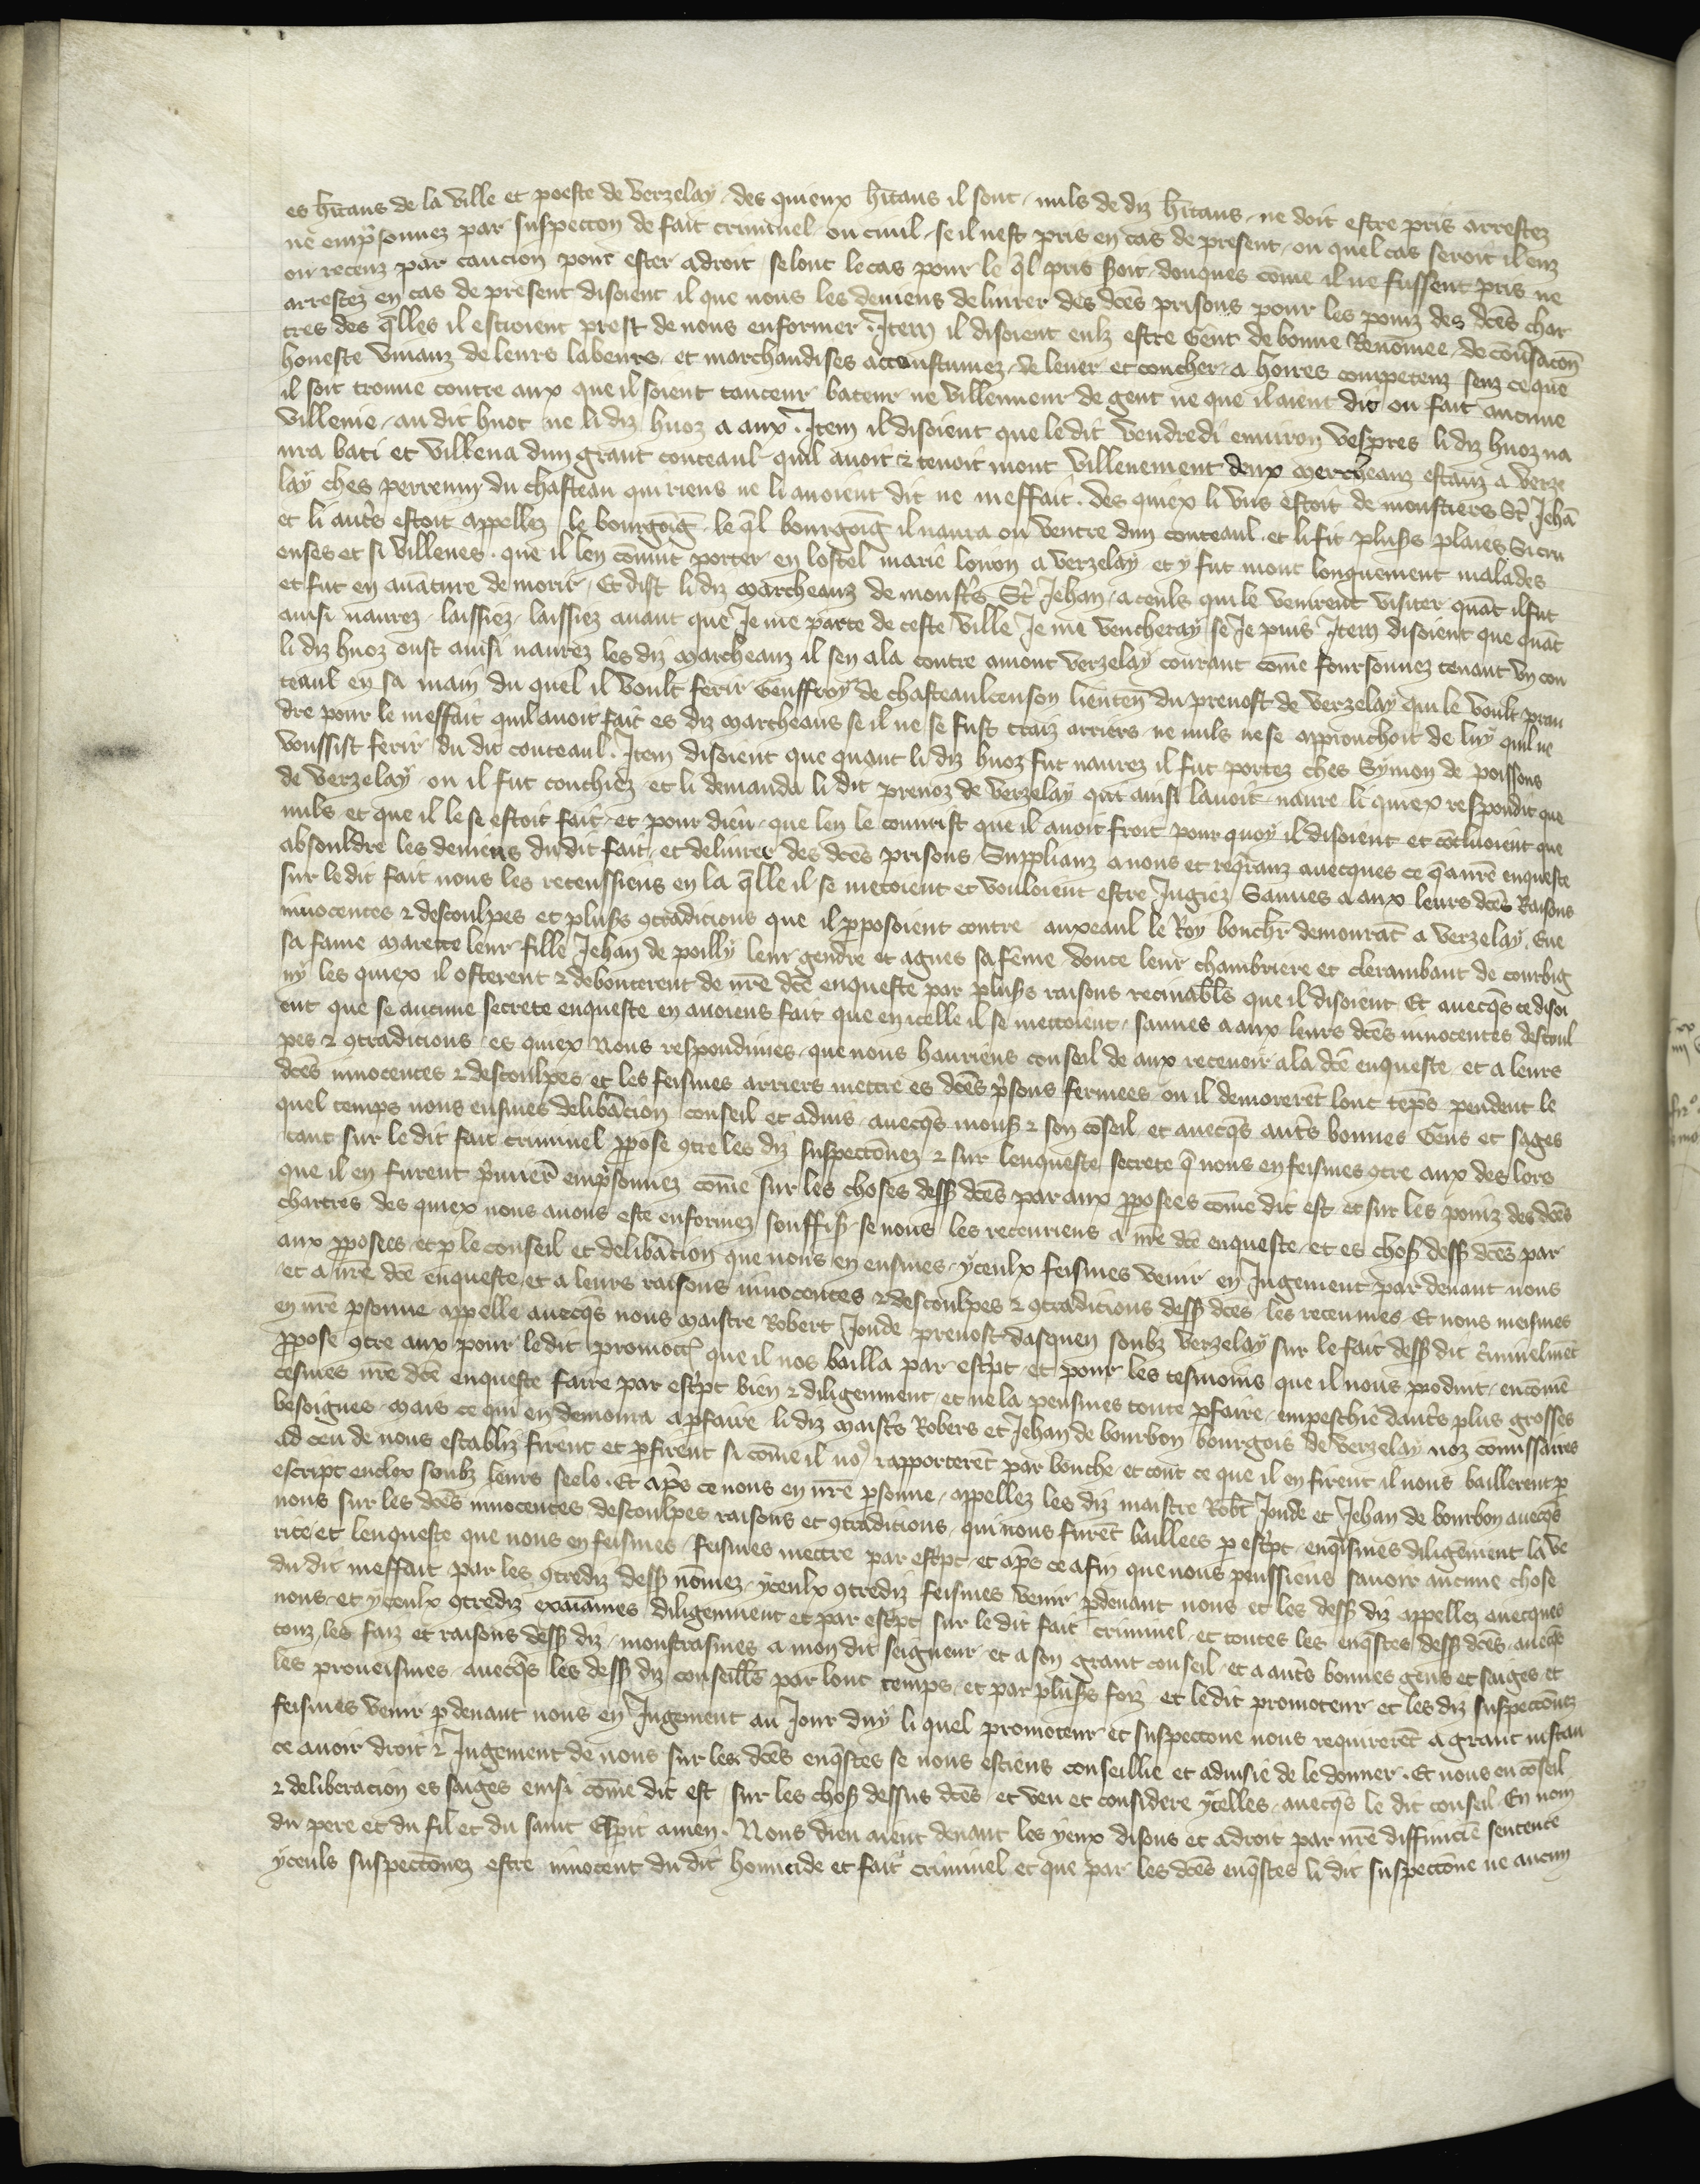 es hītans de la ville et poeste de verzelay des quieux hītans il sont nuls de diz hītans ne doit estre pris arrestez
ne emp̄sonnez par suspeccon de fait criminel ou ciuil se il nest pris en cas de present ou quel cas seroit il enz
ou receuz par caucion pour ester adroit selonc le cas pour le q̄l pris soit donques come il ne fussent pris ne
arrestez en cas de present disoient il que nous les deuiens deliurer des dc̄es prisons pour les poinz des dc̄es char
tres des q̄lles il estoient prest de nous enformer Item il disoient eulz estre gent de bonne Renōmee de cōu̾sacōn
honeste viuanz de leurs labeurs et marchandises accoustumez de leuer et coucher a houres competenz senz ce que
il soit trouue contre aux que il soient tanceur bateur ne villenneur de gent ne que il aient dit ou fait aucune
villenie au dit huot ne li diz huoz a aux Item il disoient que le dit vendredi enuiron vespres li diz huoz na
ura bati et villena dun grant couteaul quil auoit ⁊ tenoit mont villenement deux mercheanz estanz a verze
lay ches perrenin du chasteau qui riens ne li auoient dit ne meffait des quiex li vns estoit de monstiers St Jehā
et li autᵉs estoit appellez le bourgoīg le q̄l bourgoīg il naura ou ventre dun couteaul et li fit plus̾s plaies Si cru
euses et si villenes que il len cōuint porter en lostel marie loiron a verzelay et y fut mont longuement malades
et fut en auāture de morir Et dist li diz marcheanz de monstᵉs St Jehan a ceuls qui le venirent visiter quāt il fut
ainsi naurez laissiez laissiez auant que Je me parte de ceste ville Je me vencheray se Je puis Item disoient que quāt
li diz huoz oust ainsi naurez les diz marcheanz il sen ala contre amont verzelay courant cōme foursonnez tenant vn cou
teaul en sa main du quel il voult ferir Geuffroy de chasteaulcenson lieuteñ du preuost de verzelay qui le voult pran
dre pour le meffait quil auoit fait es diz marcheans se il ne se fust traiz arriers ne nuls ne se approuchoit de luy quil ne
voussist ferir du dit couteaul Item disoient que quant li diz huoz fut naurez il fut portez ches Symon de poissons
de verzelay ou il fut couchiez et li demanda li dit preuoz de verzelay qui ainsi lauoit naure li quiex respondit que
nuls et que il le se estoit fait et pour dieu que len le couurist que il auoit froit pour quoy il disoient et cōcluoient que
absouldre les deuiens du dit fait et deliurer des dc̄es prisons Supplianz a nous et req̄ranz auecques ce q̄ a nr̄e enqueste
sur le dit fait nous les receussiens en la q̄lle il se metoient et vouloient estre Jugiez Sauues a aux leurs dc̄es Raisons
innocentes ⁊ descoulpes et plus̾s ꝯtradicions que il ꝓposoient contre auxeaul le Roy bouch̾r demourāt a verzelay Eue
sa fame marette leur fille Jehan de poilly leur gendre et agnes sa fēme douce leur chambriere et clerambaut de courbig
ny les quiex il osterent ⁊ debouterent de nr̄e dc̄e enqueste par plus̾s raisons receuables que il disoient Et auecq̄s ce disoi
ent que se aucune secrete enqueste en auoiens fait que en icelle il se mettoient sauues a aux leurs dc̄es innocentes descoul
pes ⁊ ꝯtradicions es quiex nous respondimes que nous hauriens conseil de aux receuoir a la dc̄e enqueste et a leurs
dc̄es innocentes ⁊ descoulpes et les feismes arriers mettre es dc̄es p̄sons fermees ou il demorerēt lonc tēps pendent le
quel temps nous eusmes delibācion conseil et aduis auecq̄s mons̾ ⁊ son cōseil et auecq̄s autᵉs bonnes Gens et sages
tant sur le dit fait criminel ꝓpose ꝯtre les diz suspecconez ⁊ sur lenqueste secrete q̄ nous en feismes ꝯtre aux des lors
que il en furent p̄mier̄ emp̄sonnez cōme sur les choses dess̾ dc̄es par aux ꝓposees cōme dit est et sur les poinz des dc̄es
chartres des quiex nous auons este enformez souffis̾ se nous les receuriens a nr̄e dc̄e enqueste et es chos̾ dess̾ dc̄es par
aux ꝓposees et ꝑ le conseil et delibācion que nous en eusmes yceulx feismes venir en Jugement par deuant nous
et a nr̄e dc̄e enqueste et a leurs raisons innocentes ⁊ descoulpes ⁊ ꝯtradicions dess̾ dc̄es les receumes Et nous meismes
en nr̄e ꝑsonne appelle auecq̄s nous maistre Robert Joude preuost dasquen soubz verzelay sur le fait dess̾ dit c̄minelmēt
ꝓpose ꝯtre aux pour le dit promoct̾ que il nos bailla par escpt et pour les tesmoins que il nous produit en cōmē
cesmes nr̄e dc̄e enqueste faire par escpt bien ⁊ diligenment et ne la peusmes toute ꝑfaire empeschie dautᵉs plus grosses
besoignes mais ce qui en demoura a ꝑfaire li diz maistᵉs Robers et Jehan de bourbon bourgois de verzelay noz cōmissaires
ad ceu de nous establiz firent et ꝑfirent si cōme il noꝰ rapporterēt par bouche et tout ce que il en firent il nous baillerent ꝑ
escript enclox soubz leurs seelz Et ap̄s ce nous en nr̄e ꝑsonne appellez les diz maistre Robt̄ Joude et Jehan de bourbon auecq̄s
nous sur les dc̄es innocentes descoulpes raisons et ꝯtradicions qui nous furēt baillees ꝑ escpt enq̄ismes diligēment la ve
rite et lenqueste que nous en feismes feismes mettre par escpt et ap̄s ce afin que nous peussiens sauoir aucune chose
du dit meffait par les ꝯtrediz dess̾ nōmez yceulx ꝯtrediz feismes venir ꝑ deuant nous et les dess̾ diz appellez auecques
nous et yceulx ꝯtrediz exaīames diligenment et par escpt sur le dit fait criminel et toutes les enq̄stes dess̾ dc̄es auecq̄s
touz les faiz et raisons dess̾ diz monstrasmes a mon dit seigneur et a son grant conseil et a autᵉs bonnes gens et saiges et
les proueismes auecq̄s les dess̾ diz conseill̄s par lonc temps et par plus̾s foiz et le dit promoteur et les diz suspecconez
feismes venir ꝑ deuant nous en Jugement au Jour duy li quel promoteur et suspeccone nous requirerēt a grant instan
ce auoir droit ⁊ Jugement de nous sur les dc̄es enq̄stes se nous estiens conseillie et aduisie de le donner Et nous eu cōseil
⁊ deliberacion es saiges ensi cōme dit est sur les chos̾ dessus dc̄es et veu et considere ycelles auecq̄s le dit conseil En nom
du pere et du fil et du saint Esp̄it amen Nous dieu aient deuant les yeux disons et a droit par nr̄e diffinitīe sentence
yceuls suspecconez estre innocent du dit homicide et fait criminel et que par les dc̄es enq̄stes li dit suspeccone ne aucun